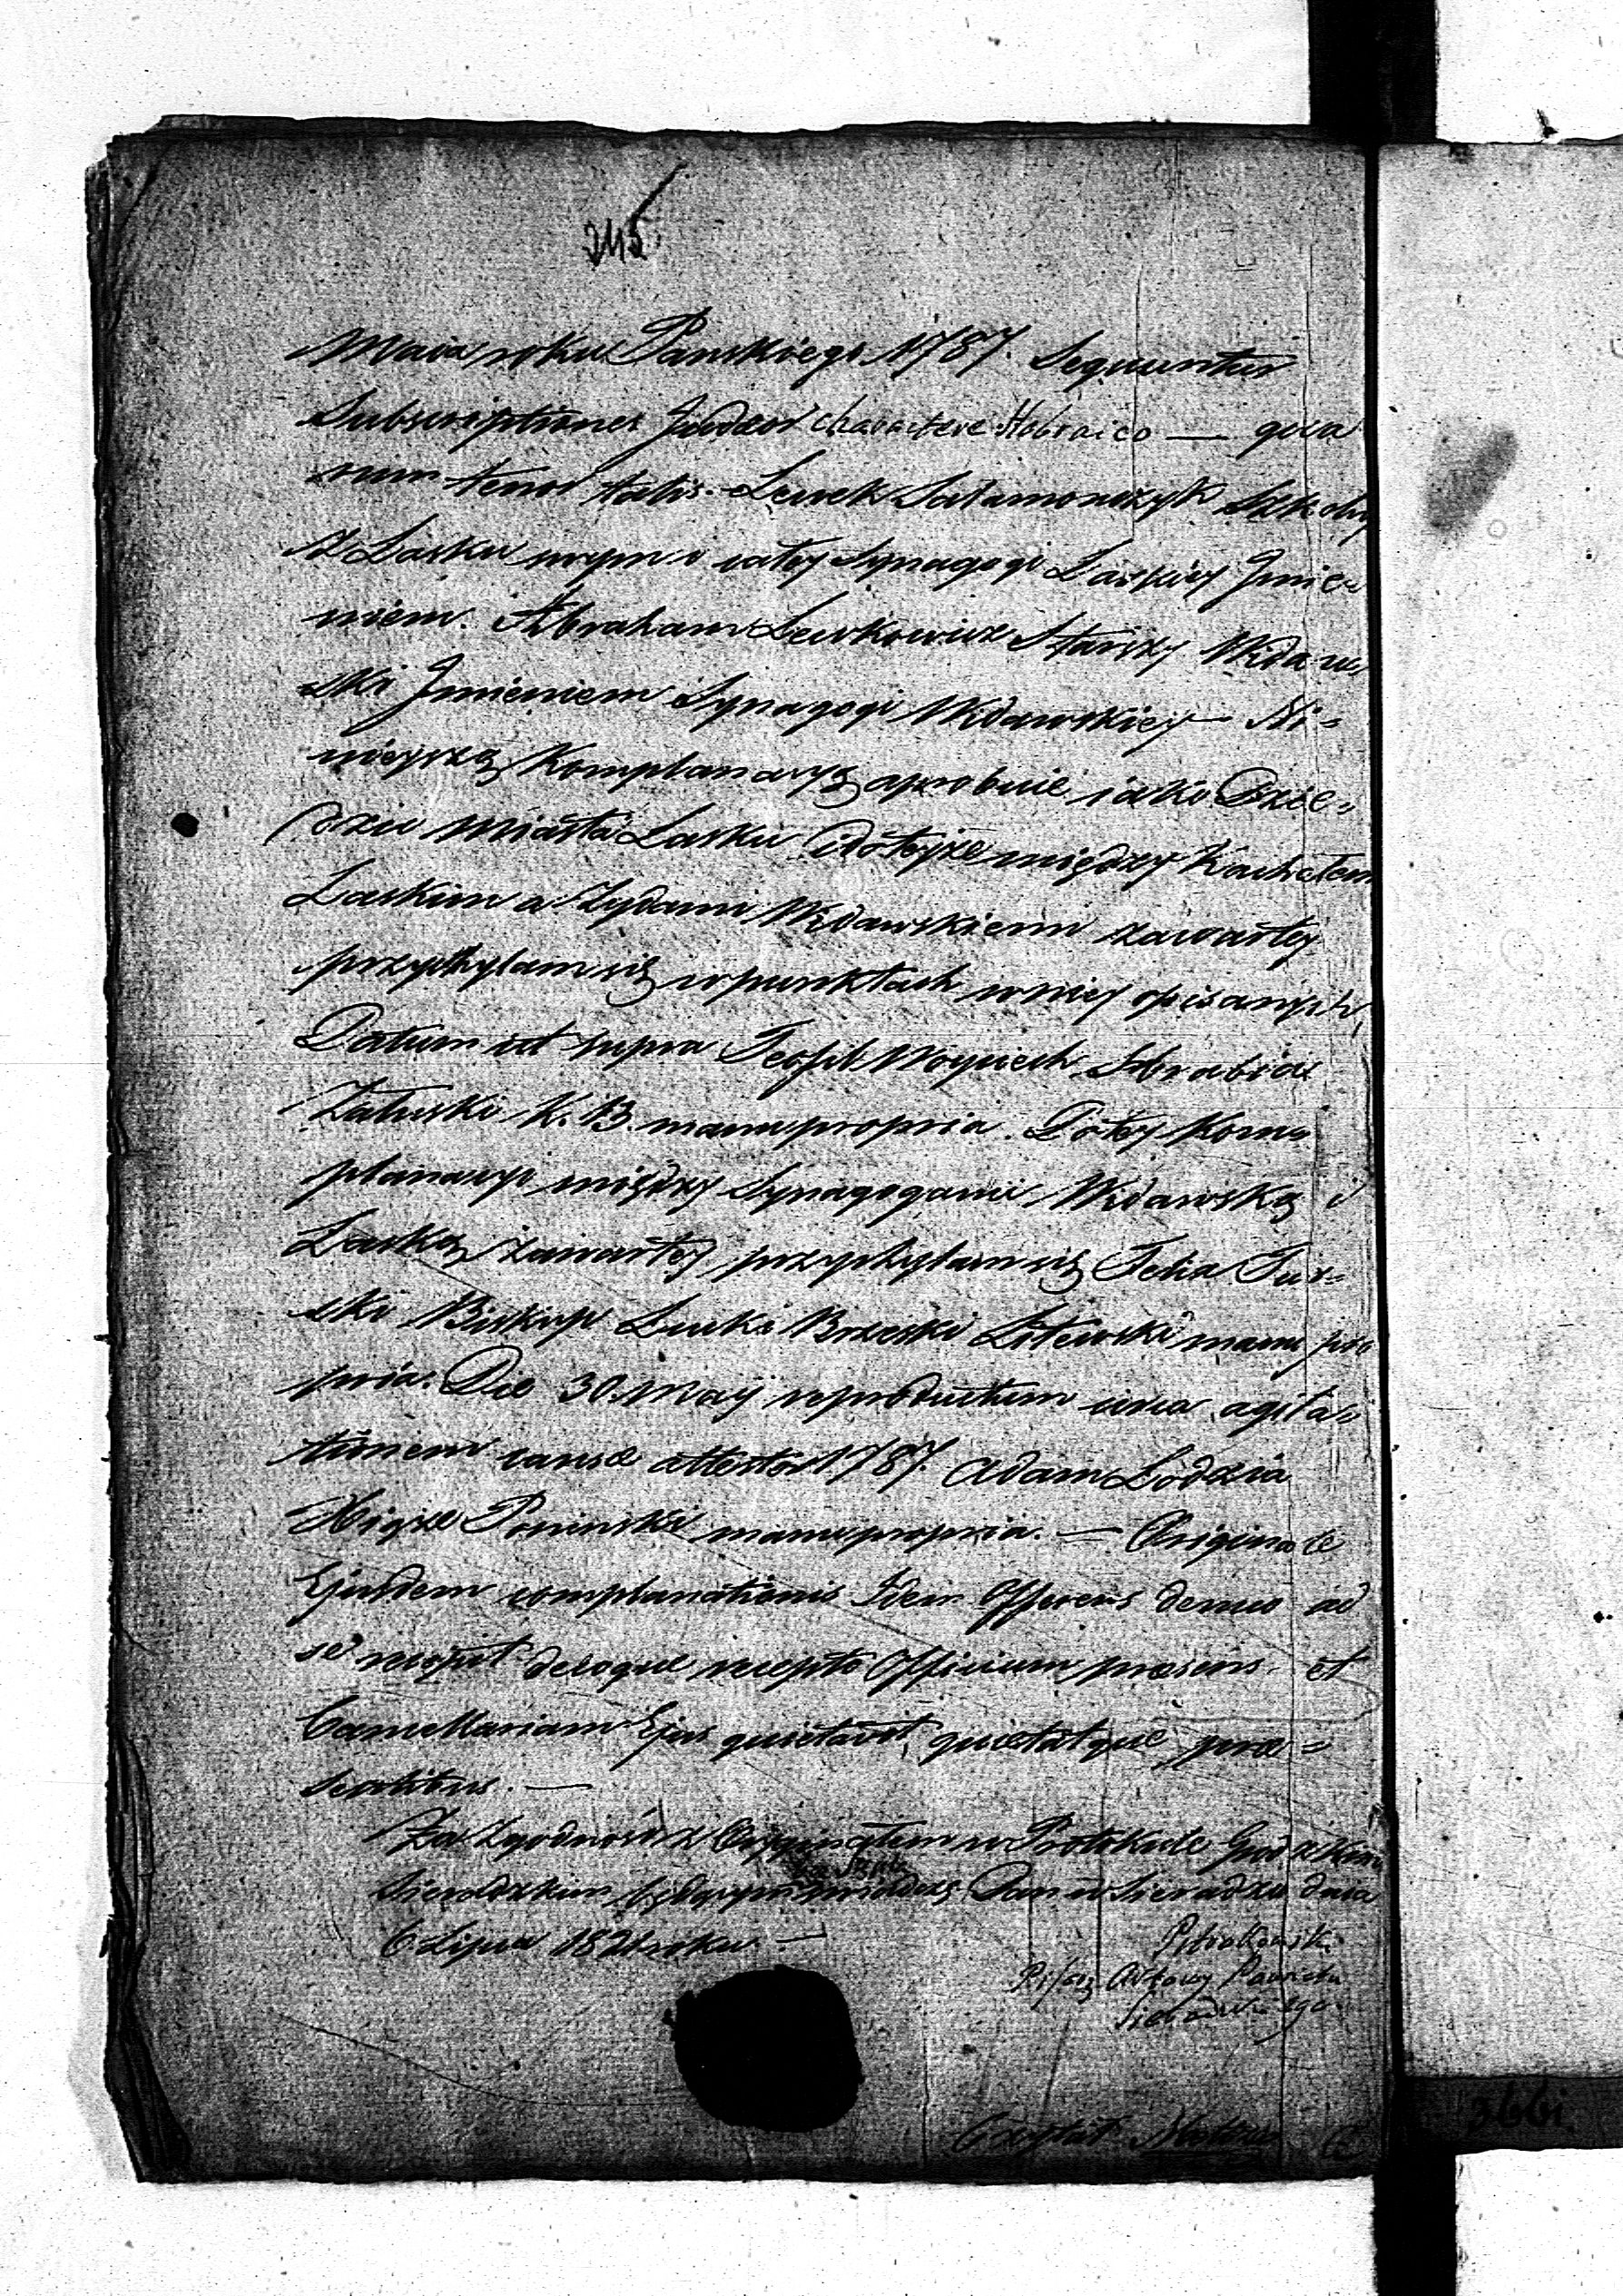 245
Maia roku Panskiego 1787. Sequuntur
Subscriptiones Judæor charactere Hebraico — quo
rum tenor talis. Lewek Salamonczyk Szkolny
z Lasku swym i całey Synagogi Laskiey Jmie=
niem. Abraham Lewkowicz Starszy Widaw
ski Jmieniem Synagogi Widawskiey — Ni=
nieyszą Komplanacyą aprobuie iako Dzie=
dzic Miasta Lasku i do teyże między Kachałem
Laskim a Zydami Widawskiemi zawartey
przychylam się w punktach w niey opisanych,
Datum ut supra Teofil Woyciech Hrabia
Załuski K. B. manu propria. Do tey Kom=
planacyi między Synagogami Widawską i
Laską zawartey przychylam się Felix Tur=
ski Biskup Łucki Brzeski Litewski manu pro
pria. Die 30. Maij reproductum circa agita=
tionem causæ attestor 1787. Adam Łodzia
Xiąże Poninski manu propria. — Originale
Ejusdem complanationis Idem Offerens denuo ad
se recepit deque recepto Officium præsens et
Cancellariam Ejus quietavit, quietatque præ=
sentibus. —
Za zgodność z Oryginałem w Protokule Grodzkim
Sieradzkim będącym Dan w Sieradzu dnia
6 Lipca 182 roku —
Pstrokoński
Pisarz Aktowy Powiatu
Sieradzkiego
Czytał
366i